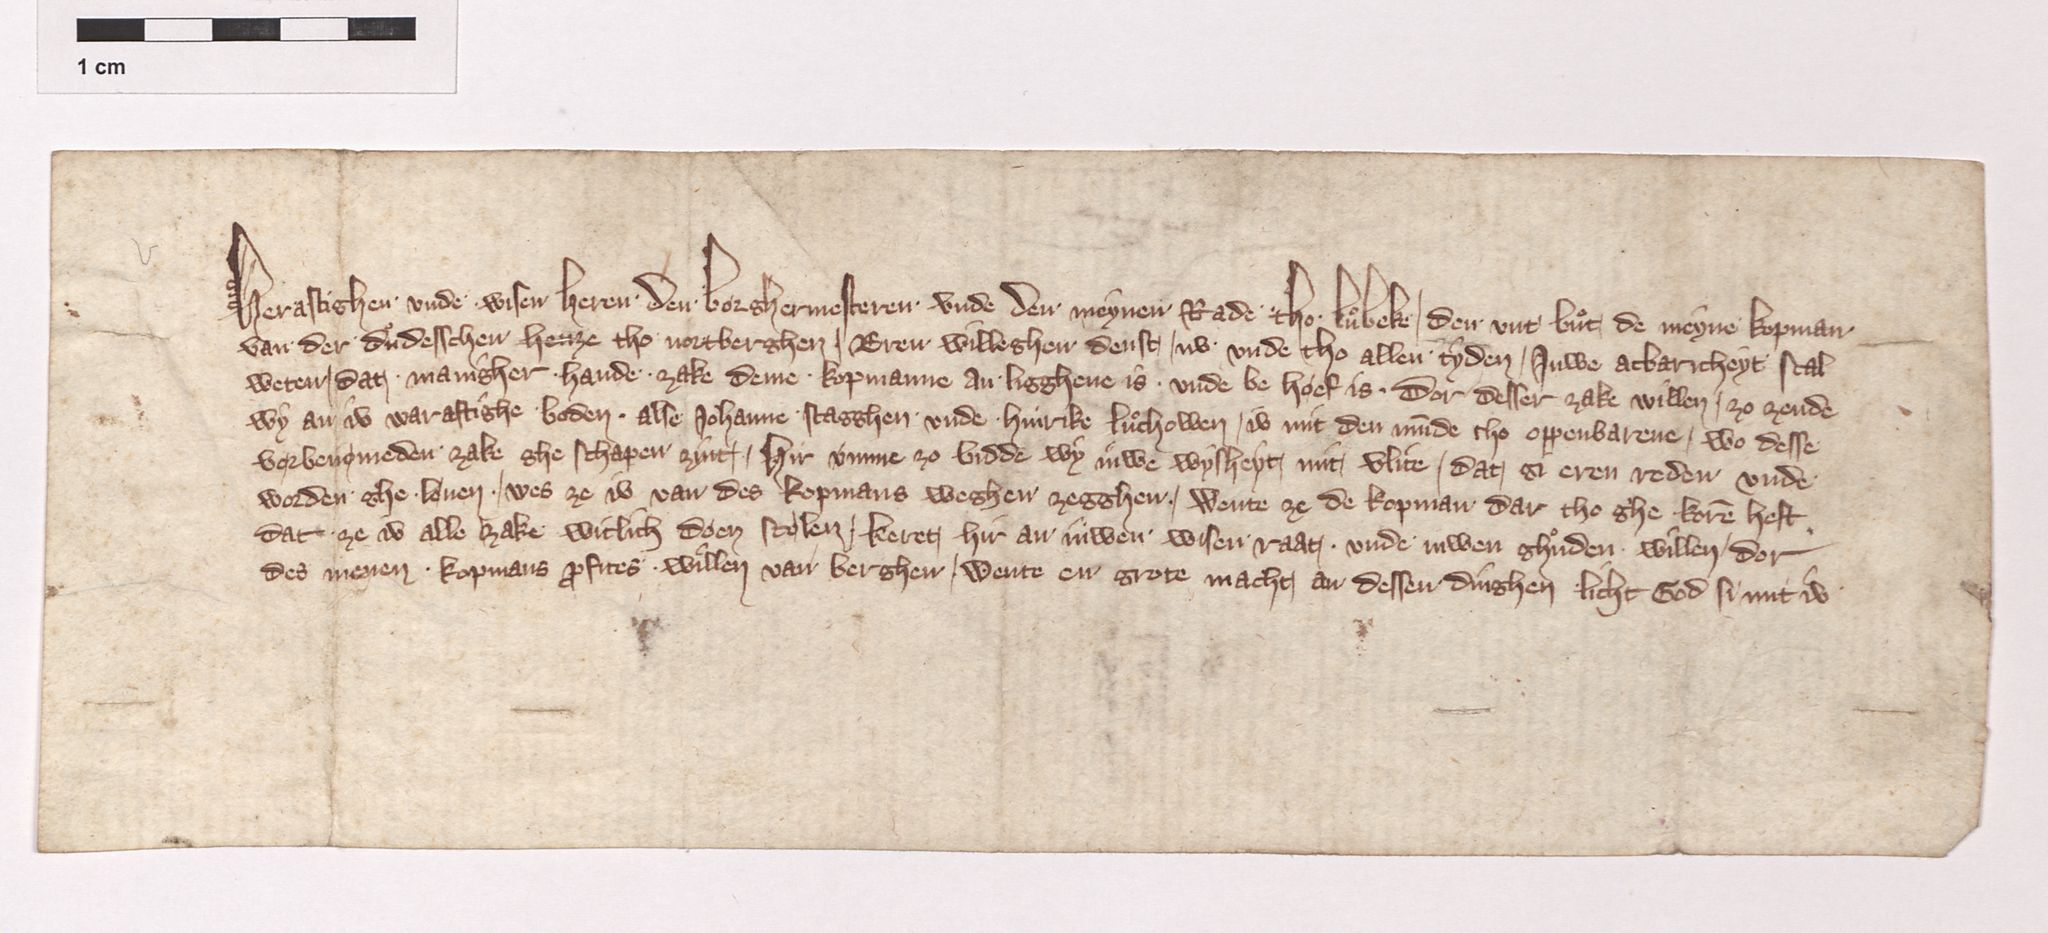 1 cm
Veraftighen · vnde · wisen heren · den borghermesteren · vnde den meynen Rade · tho · lůbeke / den vnt bůt de meyne kopman
van der důdesschen henze tho nortberghen / Eren willeghen denst / nv vnde tho allen tyden / Juwe acbaricheyt scal
weten / dat · manigher · hande · zake deme · kopmanne an · ligghene is · vnde be hoef is · Dor desser zake willen / zo zende
wy an iv waraftighe boden · alse Johanne stagghen vnde · hinrike lůchowen / iv mit den mūde tho oppenbarene / wo desse
vorbenomeden zake ghe schapen zint / Hir vmme zo bidde wy iuwe wysheyt mit vlite / dat gi eren reden vnde
worden ghe · louen · / wes ze iv van des kopmans weghen zegghen · / Wente ze de kopman dar tho ghe korē heft
dat ze iv alle zake witlich doen scolen / keret hir an iuwen wisen raat · vnde iuwen ghůden willen / dor
des menen · kopmans ꝓfites · willen van berghen / Wente en grote macht an dessen dinghen licht God si mit iv